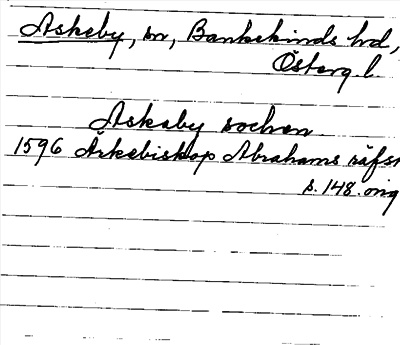 Askeby, sn, Bankekinds hd,
Österg. l.
Askaby sochen
1596 Ärkebiskop Abrahams räfst
s. 148. orig